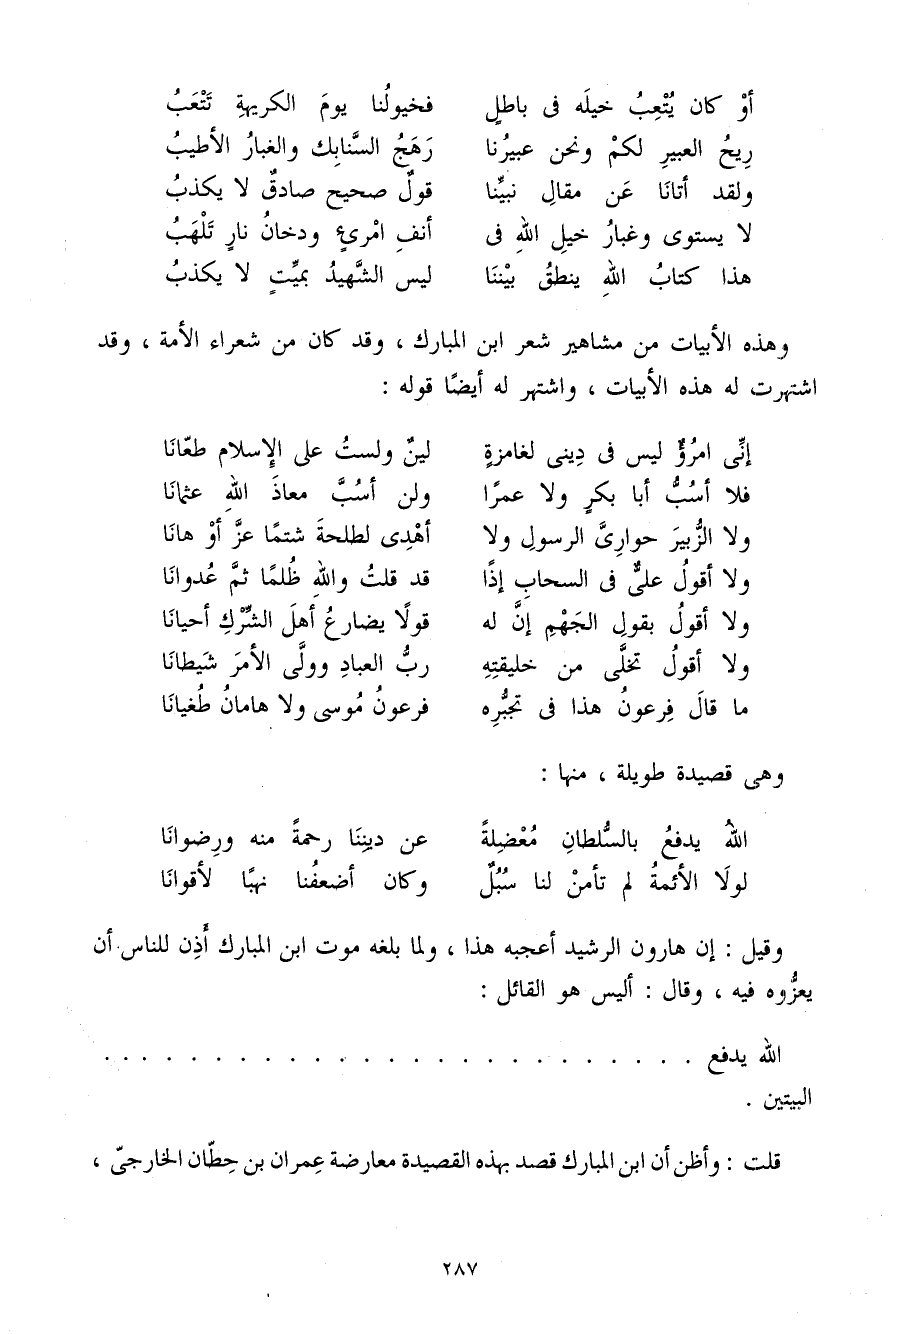 أوْ كان يُتْعِبُ خيلَه فى باطلٍ فخيولُنا يومَ الكريهةِ تَتْعَبُ
رِيحُ العبيرِ لكمْ ونحن عبيرُنا رَهَجُ السَّنابِك والغبارُ الأطيبُ
ولقد أتانَا عَن مقالِ نبيِّنا قولٌ صحيح صادقٌ لا يكذبُ
لا يستوى وغبارُ خيلِ اللهِ فى أنفِ امْرىءٍ ودخانُ نارٍ تَلْهَبُ
هذا كتابُ اللهِ ينطقُ بيْننَا ليس الشَّهيدُ بميِّتٍ لا يكذبُ
وهذه الأبيات من مشاهير شعر ابن المبارك ، وقد كان من شعراء الأمة ، وقد
اشتهرت له هذه الأبيات ، واشتهر له أيضًا قوله :
إنِّى امرُؤٌ ليس فى دِينى لغامزةٍ لينٌ ولستُ على الإسلام طعّانَا
فلا أسُبُّ أبا بكرٍ ولا عمرًا ولن أسُبَّ معاذَ اللهِ عثمانَا
ولا الزُّبيرَ حوارِىَّ الرسولِ ولا أهْدِى لطلحةَ شتمًا عزَّ أوْ هانَا
ولا أقولُ علىٌّ فى السحابِ إذًا قد قلتُ واللهِ ظُلمًا ثمَّ عُدوانَا
ولا أقولُ بقولِ الجَهْمِ إنَّ له قولًا يضارعُ أهلَ الشِّرْكِ أحيانَا
ولا أقولُ تخلَّى من خليقتِهِ ربُّ العبادِ وولَّى الأمرَ شَيطانَا
ما قالَ فِرعونُ هذا فى تجبُّرِه فرعونُ مُوسى ولا هامانُ طُغيانَا
وهى قصيدة طويلة ، منها :
اللهُ يدفعُ بالسُّلطانِ مُعْضِلةً عن ديننَا رحمةً منه ورِضوانَا
لولَا الأئمةُ لم تأمنْ لنا سُبُلٌ وكان أضعفُنا نهبًا لأقوانَا
وقيل : إن هارون الرشيد أعجبه هذا ، ولما بلغه موت ابن المبارك أَذِن للناس أن
يعزُّوه فيه ، وقال : أليس هو القائل :
الله يدفع . . . . . . . . . . . . . . . . . . . . . .
البيتين .
قلت : وأظن أن ابن المبارك قصد بهذه القصيدة معارضة عِمران بن حِطّان الخارجىّ ،
٢٨٧